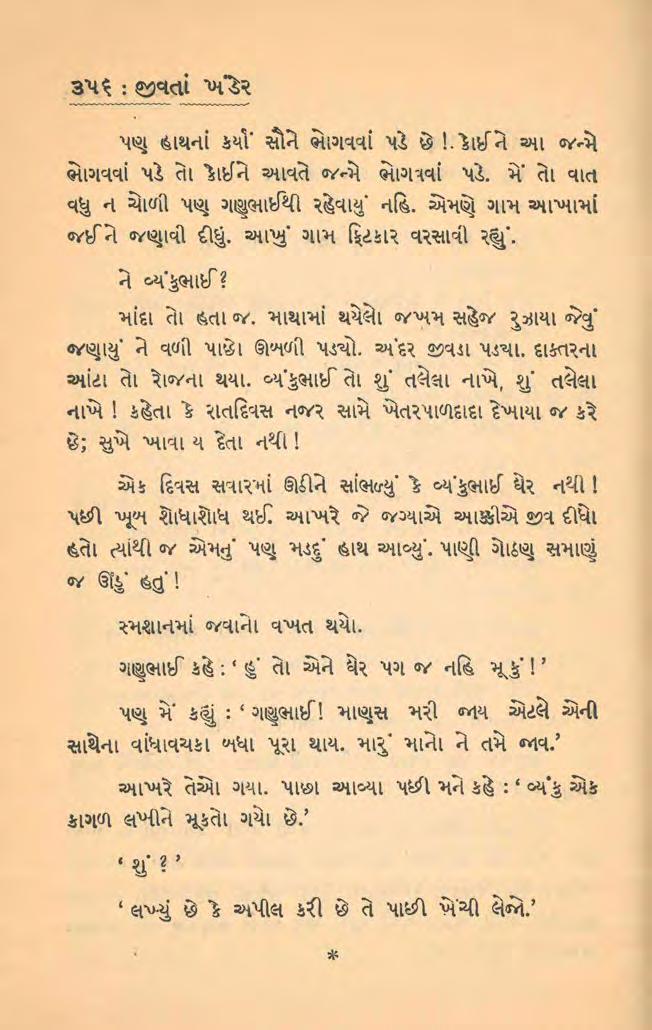 ૩૫૬ : જીવતાં ખંડેર
પણ હાથનાં કર્યાં સૌને ભોગવવાં પડે છે !. કોઈને આ જન્મે
ભોગવવાં પડે તો કોઈને આવતે જન્મે ભોગવવાં પડે. મેં તો વાત
વધુ ન ચોળી પણ ગણુભાઈથી રહેવાયું નહિ. એમણે ગામ આખામાં
જઈને જણાવી દીધું. આખું ગામ ફિટકાર વરસાવી રહ્યું.
ને વ્યંકુભાઈ ?
માંદા તો હતા જ. માથામાં થયેલો જખમ સહેજ રુઝાયા જેવું
જણાયું ને વળી પાછો ઊખળી પડ્યો. અંદર જીવડા પડયા. દાક્તરના
આંટા તો રોજના થયા. વ્યંકુભાઈ તો શું તલેલા નાખે, શું તલેલા
નાખે ! કહેતા કે રાતદિવસ નજર સામે ખેતરપાળદાદા દેખાયા જ કરે
છે; સુખે ખાવા ય દેતા નથી !
એક દિવસ સવારમાં ઊઠીને સાંભળ્યું કે વ્યંકુભાઈ ઘેર નથી !
પછી ખૂબ શોધાશોધ થઈ. આખરે જે જગ્યાએ આક્કીએ જીવ દીધો
હતો ત્યાંથી જ એમનું પણ મડદું હાથ આવ્યું. પાણી ગોઠણ સમાણું
જ ઊંડું હતું !
સ્મશાનમાં જવાનો વખત થયો.
ગણુભાઈ કહે : ‘ હું તો એને ઘેર પગ જ નહિ મૂકું ! ’
પણ મેં કહ્યું : ‘ ગણુભાઈ! માણસ મરી જાય એટલે એની
સાથેના વાંધાવચકા બધા પૂરા થાય. મારું માનો ને તમે જાવ.’
આખરે તેઓ ગયા. પાછા આવ્યા પછી મને કહે : ‘ વ્યંકુ એક
કાગળ લખીને મૂકતો ગયો છે.’
‘ શું ? ’
‘ લખ્યું છે કે અપીલ કરી છે તે પાછી ખેંચી લેજો.’
*